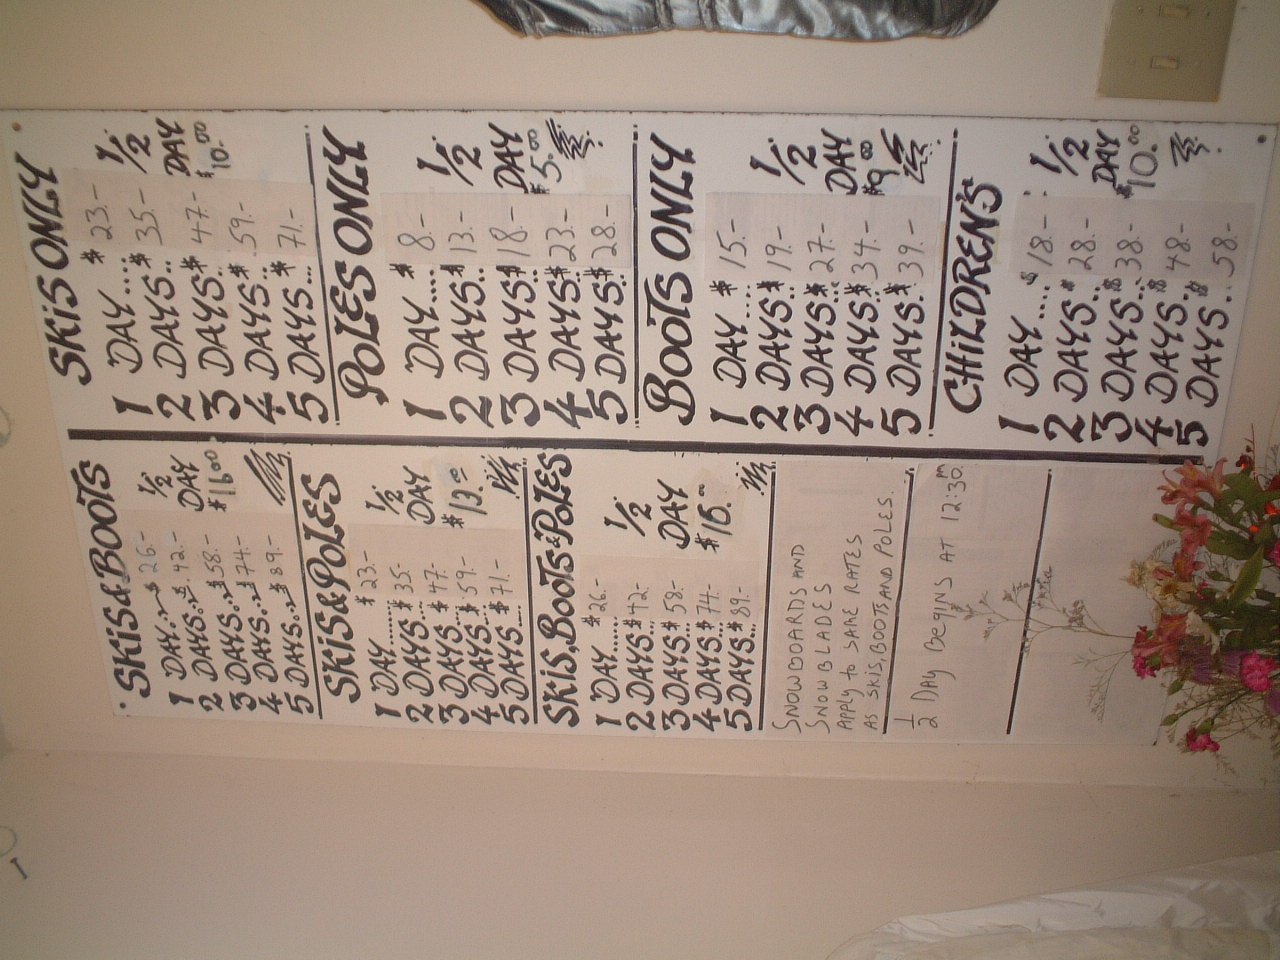 SKiS & BOOTS
1 DAY... $ 26.-
2 DAYS... $ 42.-
3 DAYS... $ 58.-
4 DAYS... $ 74.-
5 DAYS... $ 89.-
1/2
DAY
$16.00
SKiS & POLES
1 DAY....... $ 23.-
2 DAYS... $ 35.-
3 DAYS... $ 47.-
4 DAYS... $ 59.-
5 DAYS... $ 71.-
1/2
DAY
$13.00
SKiS, BOOTS & POLES
1 DAY...... $ 26.-
2 DAYS... $ 42.-
3 DAYS... $ 58.-
4 DAYS... $ 74.-
5 DAYS... $ 89.-
1/2
DAY
$16.00
SNOWBOARDS AND
SNOWBLADES
APPLY to SAME RATES
AS SKIS, BOOTS AND POLES.
1/2 DAY BEGINS AT 12:30 PM
SKiS ONLY
1 DAY.... $ 23.-
2 DAYS.. $ 35.-
3 DAYS.. $ 47.-
4 DAYS.. $ 59.-
5 DAYS... $ 71.-
1/2
DAY
$10.00
POLES ONLY
1 DAY.... $ 8.-
2 DAYS.. $ 13.-
3 DAYS.. $ 18.-
4 DAYS.. $ 23.-
5 DAYS.. $ 28.-
1/2
DAY
$5.00
BOOTS ONLY
1 DAY $ 15.-
2 DAYS.. $ 19.-
3 DAYS.. $ 27.-
4 DAYS.. $ 34.-
5 DAYS.. $ 39.-
1/2
DAY
$9.00
CHiLDREN'S
1 DAY.... $ 18.-
2 DAYS.. $ 28.-
3 DAYS.. $ 38.-
4 DAYS.. $ 48.-
5 DAYS... $ 58.-
1/2
DAY
$10.00